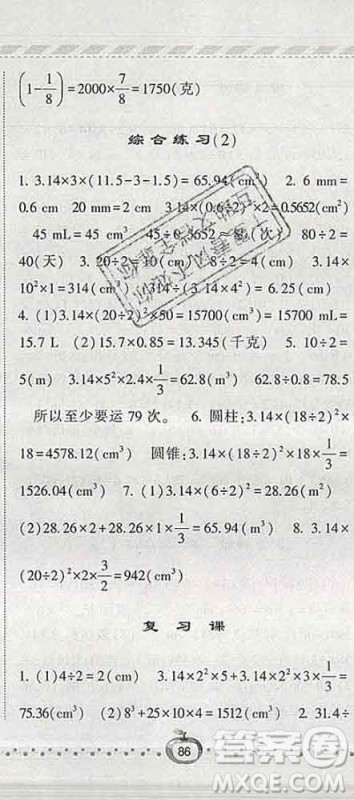 (1-1/8)=2000×7/8=1750(克)
综合练习(2)
1. 3.14×3×(11.5-3-1.5)=65.94(cm) 2. 6 mm=
0.6 cm 20 mm=2 cm 3.14×(0.6÷2)²×2=0.5652(cm³)
45 mL=45 cm³ 45÷0.5652≈80(次) 80÷2=
40(天) 3. 20÷2=10(cm) 8÷2=4(cm) 3.14×
10²×1=314(cm³) 314÷(3.14×4²)=6.25(cm)
4. (1)3.14×(20÷2)²×50=15700(cm³) 15700 mL=
15.7 L (2)15.7×0.85=13.345(千克) 5. 10÷2=
5(m) 3.14×5²×2.4×1/3=62.8(m³) 62.8÷0.8=78.5
所以至少要运 79 次。 6. 圆柱:3.14×(18÷2)²×
18=4578.12(cm³) 圆锥:3.14×(18÷2)²×18×1/3=
1526.04(cm³) 7. (1)3.14×(6÷2)²=28.26(m²)
(2)28.26×2+28.26×1×1/3=65.94(m³) 8. 3.14×
(20÷2)²×2×3/2=942(cm³)
复习课
1. (1)4÷2=2(cm) 3.14×2²×5+3.14×2²×3×1/3=
75.36(cm³) (2)8³+25×10×4=1512(cm³) 2. 31.4÷
86
答案圈
MXQE.COM